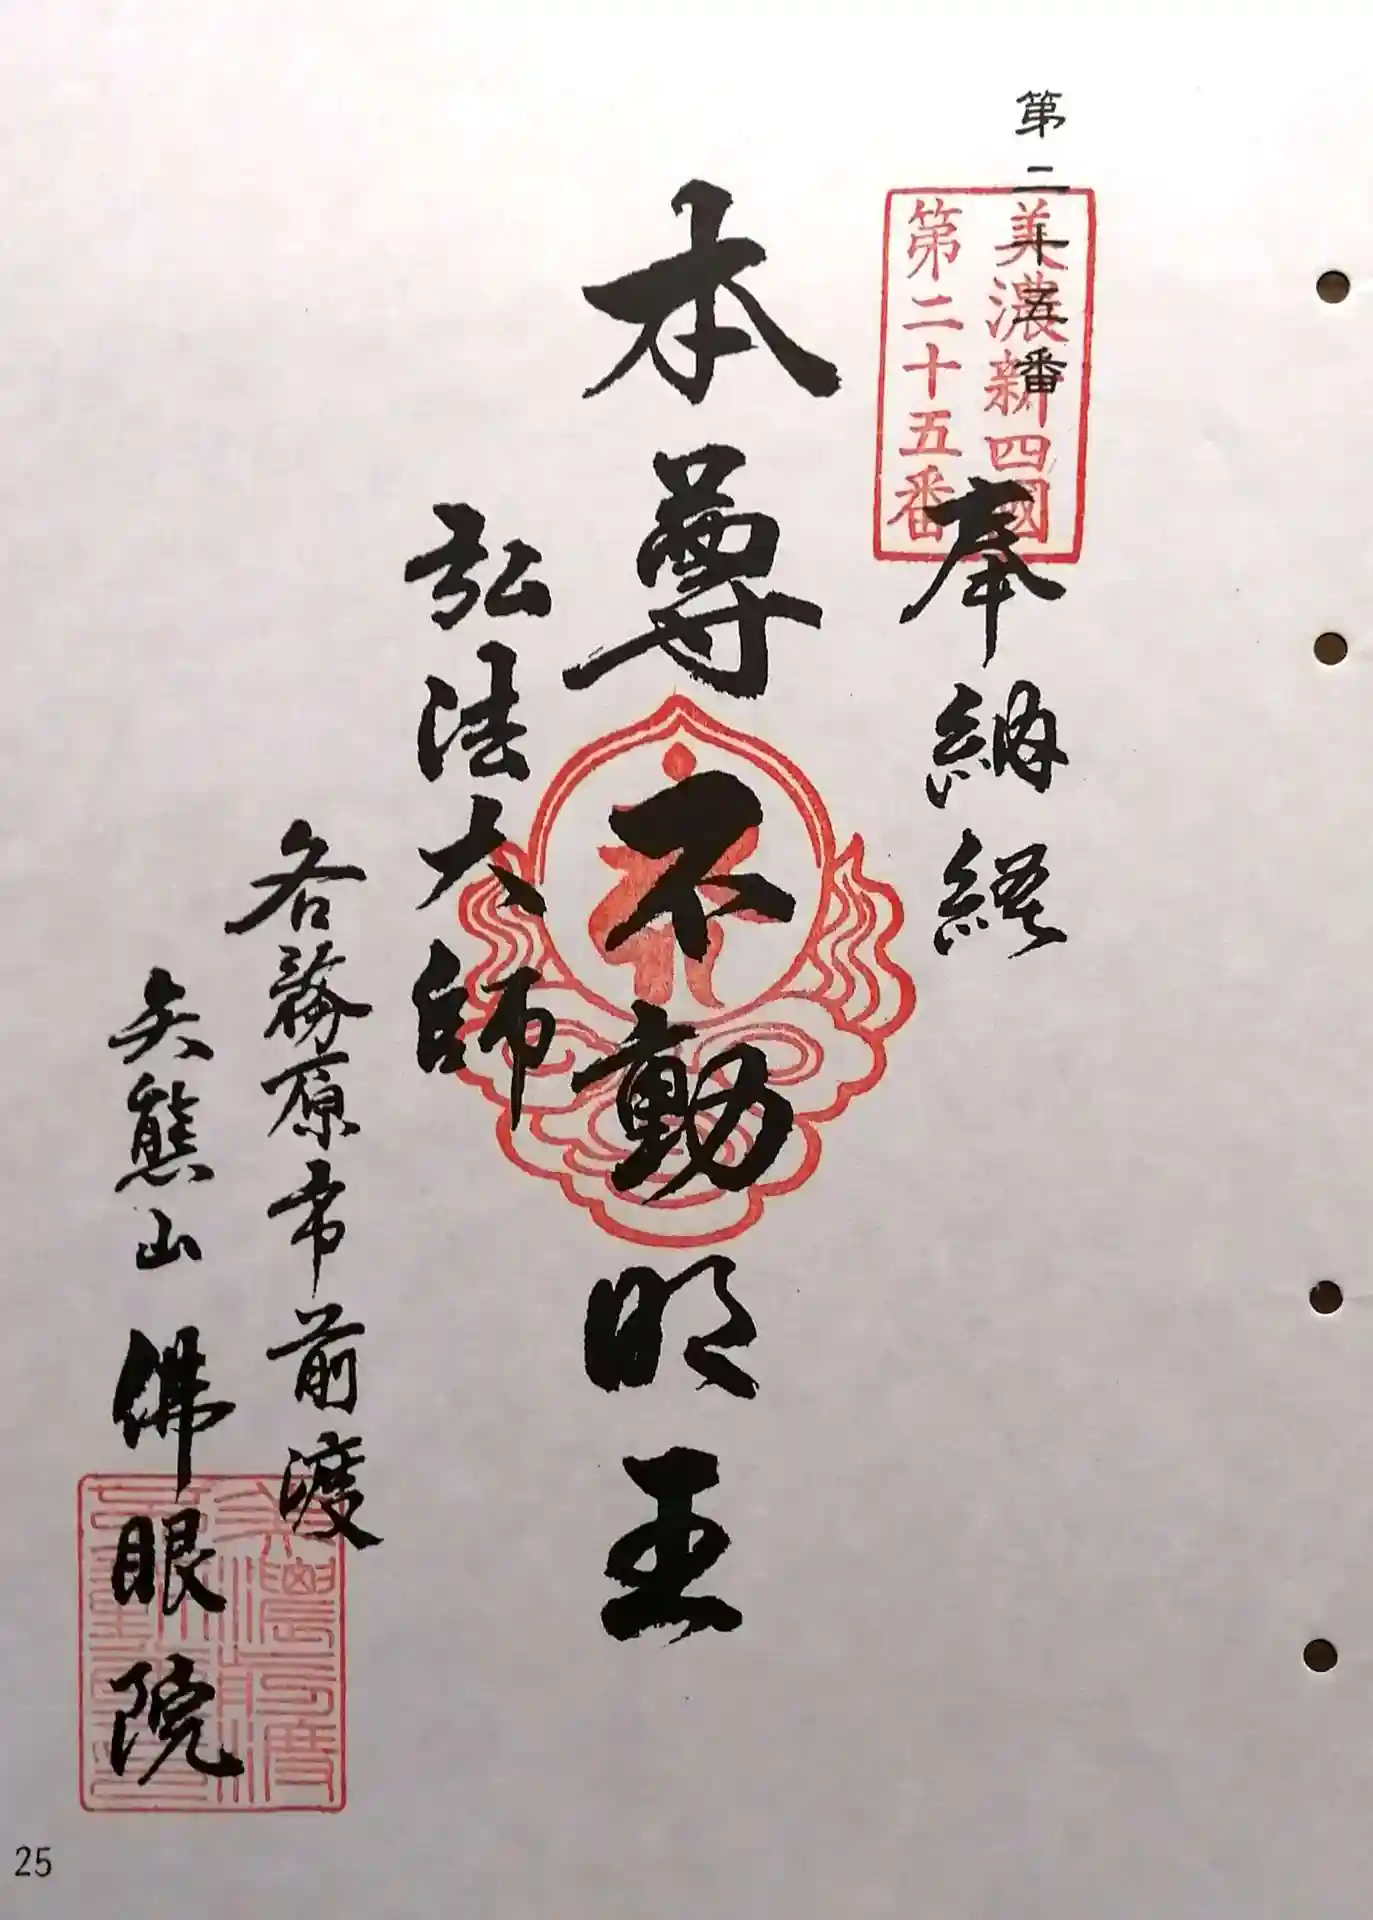 第二十五番
美濃新四國
第二十五番
奉納経
本尊不動明王
弘法大師
各務原市前渡
矢熊山 佛眼院
25